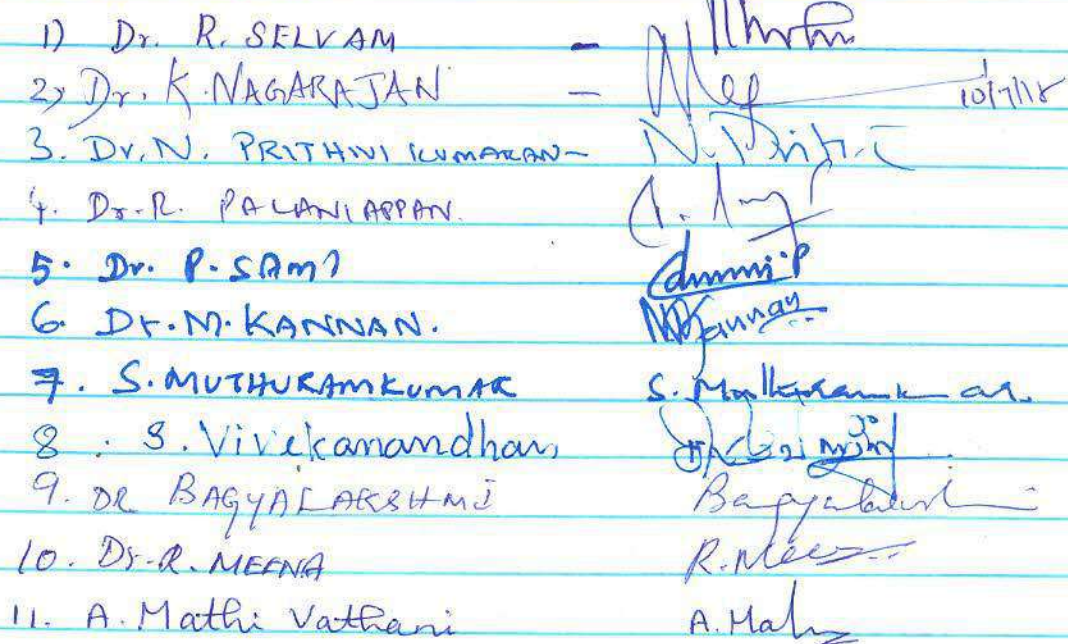 1) Dr. R. SELVAM -
2) Dr. K. NAGARAJAN - 10/7/18
3. Dr. N. PRITHIVI KUMARAN- N. Prithi
4. Dr. R. PALANIAPPAN.
5. Dr. P. SAMI
6. Dr. M. KANNAN. M Kannan
7. S. MUTHURAMKUMAR S.
8. S. Vivekanandhan
9. DR BAGYALAKSHMI Bagyalakshmi
10. Dr. R. MEENA R. Meena
11. A. Mathi Vathani A. Mathi